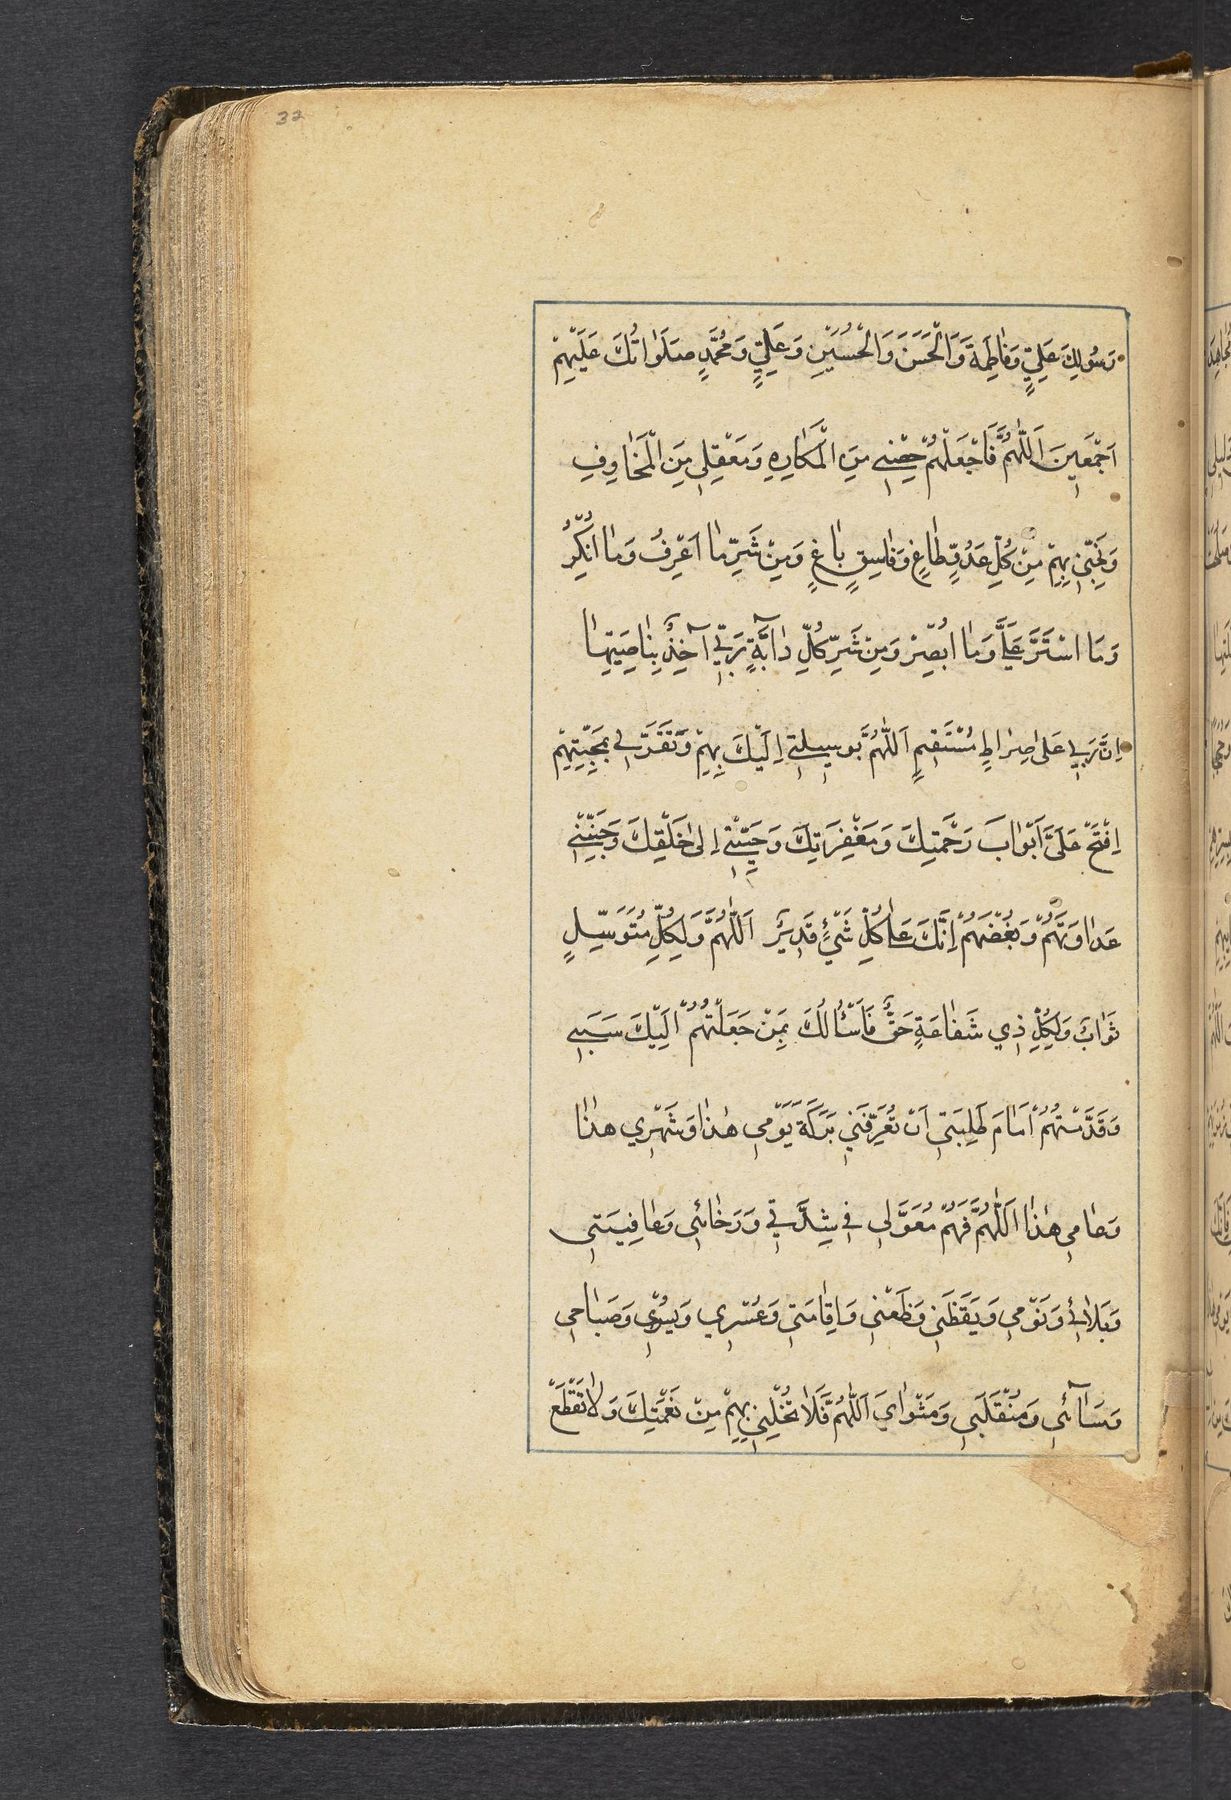 32
رَسُولِكَ عَلِيٍّ وَفَاطِمَةَ وَالْحَسَنَ وَالْحُسَيْنِ وَعَلِيٍّ وَمُحَمَّدٍ صَلَوَاتُكَ عَلَيْهِمْ
اَجْمَعِينَ اَللّٰهُمَّ فَاجْعَلْهُمْ حِصْنِي مِنَ الْمَكَارِهِ وَمَعْقِلِي مِنَ الْمَخَاوِفِ
وَنَجِّنِي بِهِمْ مِنْ كُلِّ عَدُوٍّ طَاغٍ وَفَاسِقٍ بَاغٍ وَمِنْ شَرِّ مَا اَعْرِفُ وَمَا اُنْكِرُ
وَمَا اسْتَتَرَ عَلَيَّ وَمَا اُبْصِرُ وَمِنْ شَرِّ كُلِّ دَابَّةٍ رَبِّي آخِذٌ بِنَاصِيَتِهَا
اِنَّ رَبِّي عَلَى صِرَاطٍ مُسْتَقِيمٍ اَللّٰهُمَّ بِوَسِيلَتِي اِلَيْكَ بِهِمْ وَتَقَرُّبِي بِمَحَبَّتِهِمْ
اِفْتَحْ عَلَيَّ اَبْوَابَ رَحْمَتِكَ وَمَغْفِرَتِكَ وَحَبِّبْنِي اِلَى خَلْقِكَ وَجَنِّبْنِي
عَدَاوَتَهُمْ وَبُغْضَهُمْ اِنَّكَ عَلَى كُلِّ شَيْءٍ قَدِيرٌ اَللّٰهُمَّ وَلِكُلِّ مُتَوَسِّلٍ
ثَوَابٌ وَلِكُلِّ ذِي شَفَاعَةٍ حَقٌّ فَاَسْئَلُكَ بِمَنْ جَعَلْتَهُمْ اِلَيْكَ سَبَبِي
وَقَدَّمْتُهُمْ اَمَامَ طَلِبَتِي اَنْ تُعَرِّفَنِي بَرَكَةَ يَوْمِي هٰذَا وَشَهْرِي هٰذَا
وَعَامِي هٰذَا اَللّٰهُمَّ فَهُمْ مُعَوَّلِي فِي شِدَّتِي وَرَخَائِي وَعَافِيَتِي
وَبَلَائِي وَنَوْمِي وَيَقَظَتِي وَظَعْنِي وَاِقَامَتِي وَعُسْرِي وَيُسْرِي وَصَبَاحِي
وَمَسَآئِي وَمُنْقَلَبِي وَمَثْوَايَ اَللّٰهُمَّ فَلَا تُخْلِنِي بِهِمْ مِنْ نِعْمَتِكَ وَلَا تَقْطَعْ